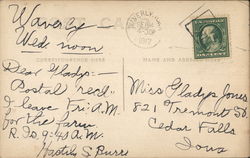 Waverly
Wed noon
POST CARD
Dear Gladys:—
Postal rec'd.
I leave Fri. A.M.
for the farm
R. I. 9:43 A.M.
Hastily S Burrs
CORRESPONDENCE
NAME AND ADDRESS
WAVERLY
1912
Miss Gladys Jones
821 Tremont St.
Cedar Falls
Iowa